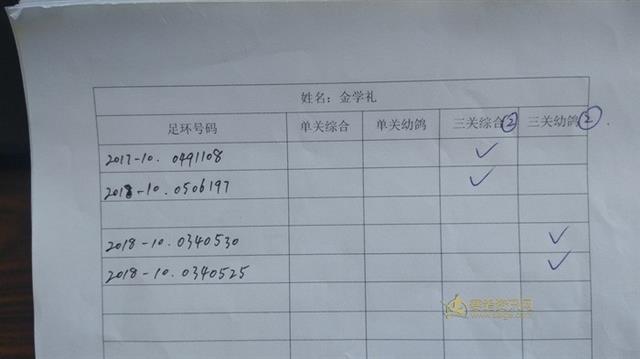 姓名：金学礼
足环号码 单关综合 单关幼鸽 三关综合② 三关幼鸽②
2017-10. 0491108 ✓
2018-10. 0506197 ✓
2018-10. 0340530 ✓
2018-10. 0340525 ✓